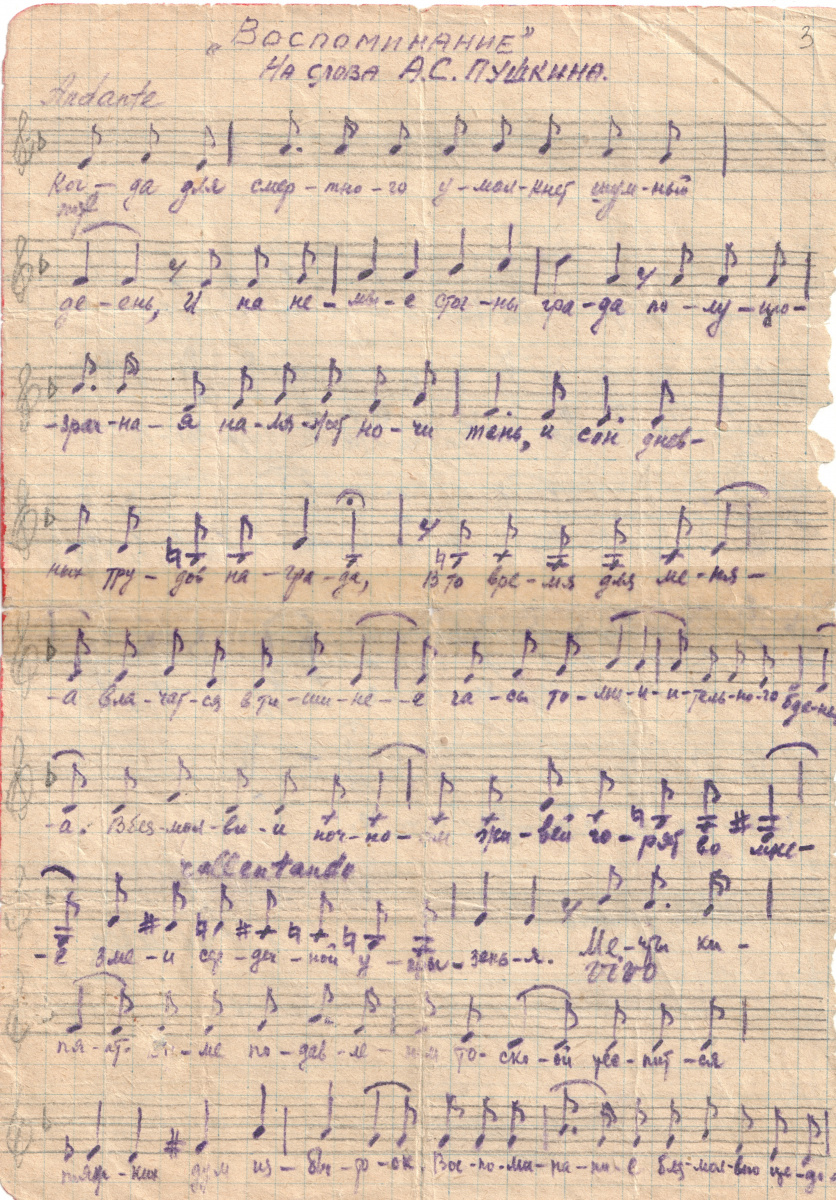 3
„Воспоминание"
На слова А.С. Пушкина.
Andante
Ког-да для смер-тно-го у-мол-кнет шум-ный
де-ень, И на не-мы-е стог-ны гра-да по-лу-про-
-зрач-на-я на-ля-жет но-чи тень, и сон днев-
ных тру-дов на-гра-да, В то вре-мя для ме-ня-
-а вла-чат-ся в ти-ши-не-е ча-сы то-ми-и-и-тель-но-го бде-нь
-а: В без-мол-ви-и ноч-но-ом жи-вей го-рят во мне-
rallentando
-е зме-и сер-деч-ной у-гры-зень-я. Ме-чты ки-
vivo
пя-ят. в у-ме по-дав-ле-нном то-ско-ой тес-нит-ся
тяж-ких дум из-бы-то-ок. Вос-по-ми-на-ни-е без-мол-вно